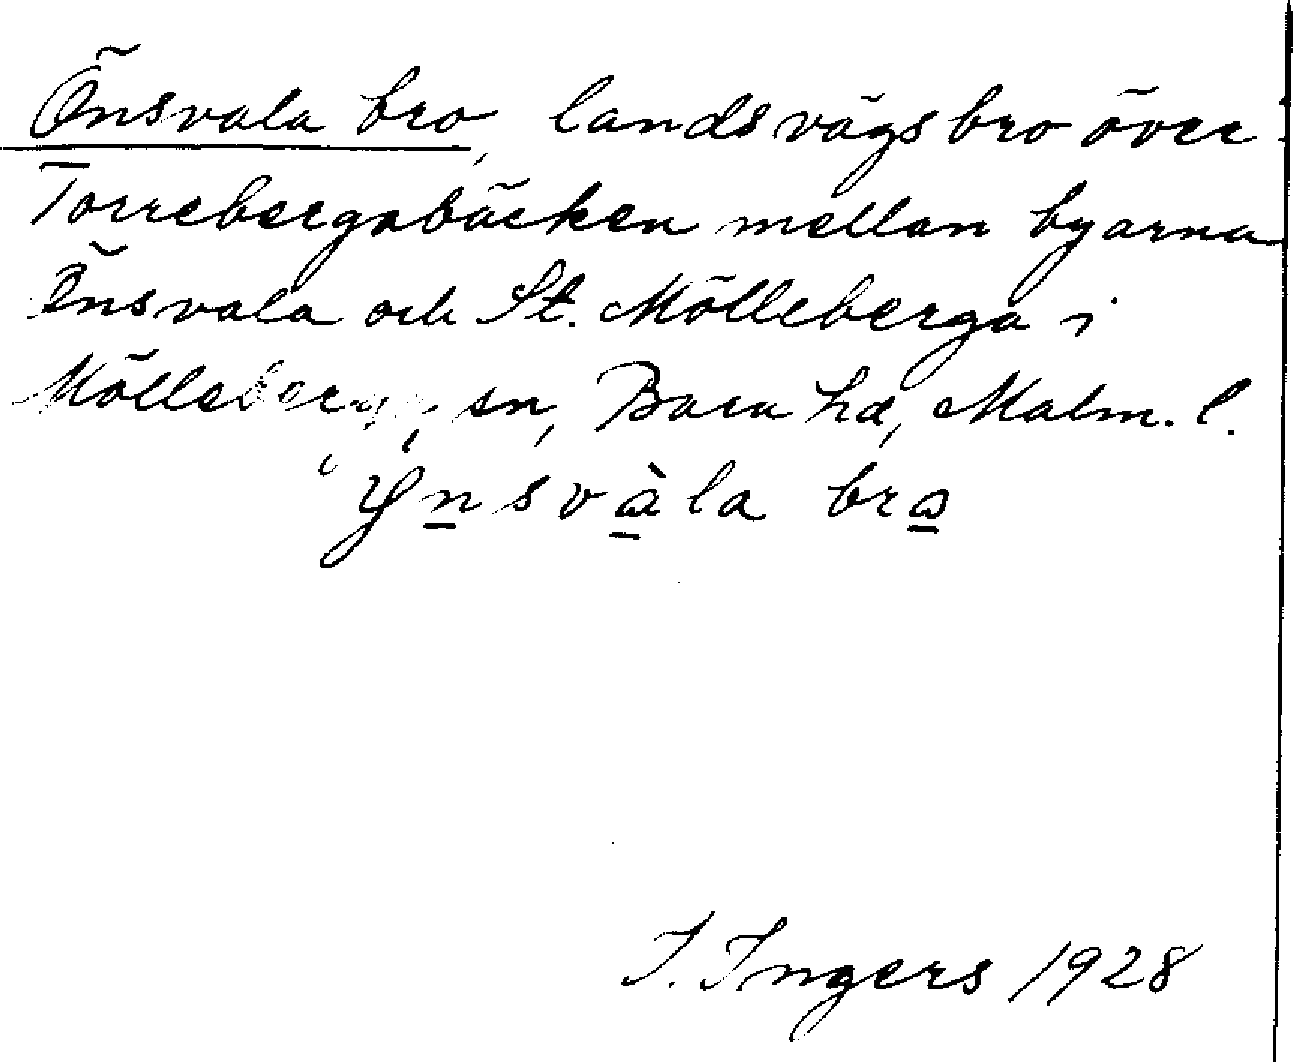 Önsvala bro, landsvägsbro över
Torrebergabäcken mellan byarna
Önsvala och St. Mölleberga i
Mölleberga sn, Bara hd, Malm. l.
Ynsvàla bro
I. Ingers 1928